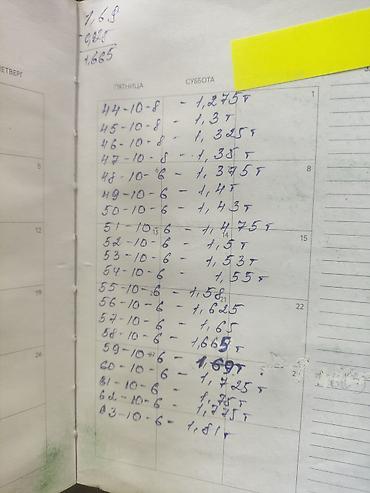 1,69
0,025
1,665
ЧЕТВЕРГ
ПЯТНИЦА СУББОТА
1
44-10-8 - 1,275т
45-10-8 - 1,3т
46-10-8 - 1,325т
47-10-8 - 1,35т
48-10-6 - 1,375т
49-10-6 - 1,4т
50-10-6 - 1,43т
51-10-6 - 1,475т
52-10-6 - 1,5т
53-10-6 - 1,53т
54-10-6 - 1,55т
55-10-6 - 1,58
56-10-6 - 1,625
57-10-6 - 1,65
58-10-6 - 1,665т
59-10-6 - 1,69т
60-10-6 - 1,725т
61-10-6 - 1,75т
62-10-6 - 1,775т
63-10-6 - 1,81т
5
8
12
14
15
19
22
26